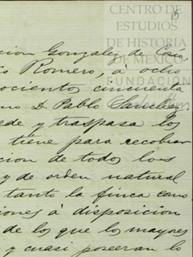 CENTRO DE
ESTUDIOS
DE HISTORIA
DE MÉXICO
FUNDACIÓN
cion Gonzalez de Cos
Romero, á ocho
ocientos cincuenta
D. Pablo
ede y traspasa los
tiene para recobrar
cion de todo los
y de orden natural
tanto la finca con
iones á disposicion
de los que los mayores
y cuasi poseran lo